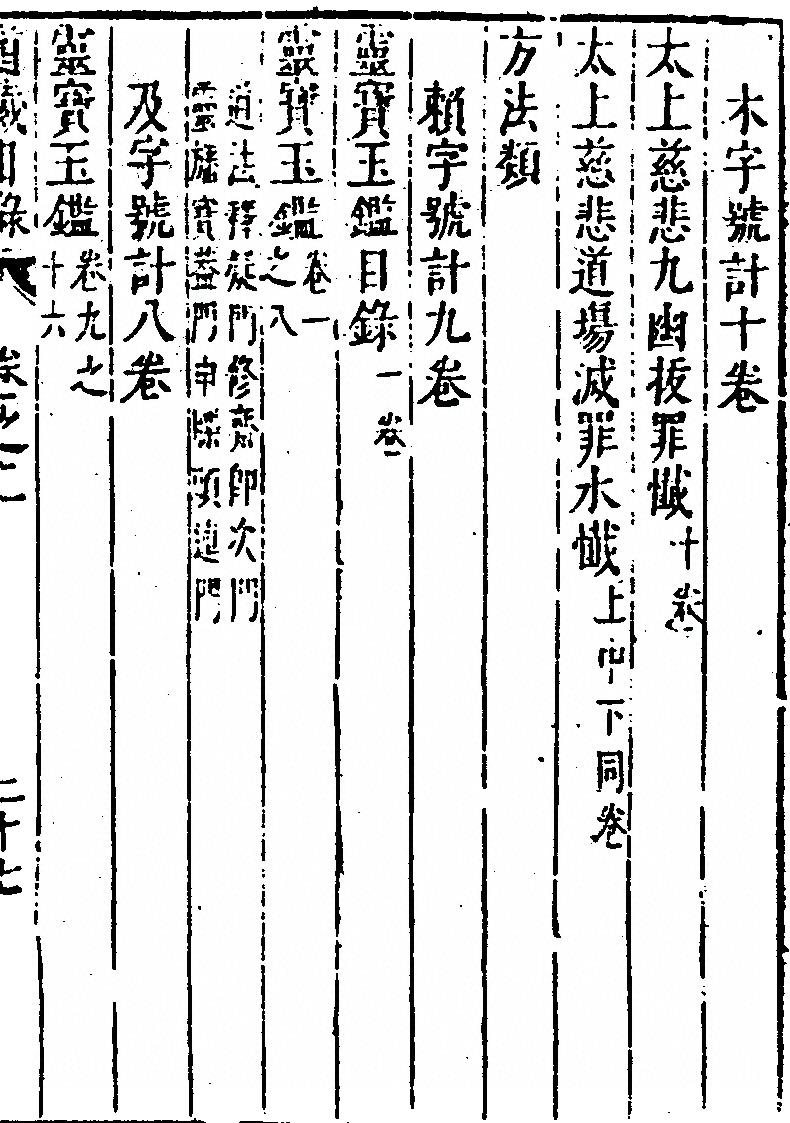 木字號計十卷
太上慈悲九幽拔罪懺十卷
太上慈悲道場滅罪水懺上中下同卷
方法類
賴字號計九卷
靈寶玉鑑目錄一卷
靈寶玉鑑卷一之八
道法釋疑門修齋師次門
靈旛寶蓋門申牒頭連門
及字號計八卷
靈寶玉鑑卷九之十六
藏目錄 卷之二 二十七